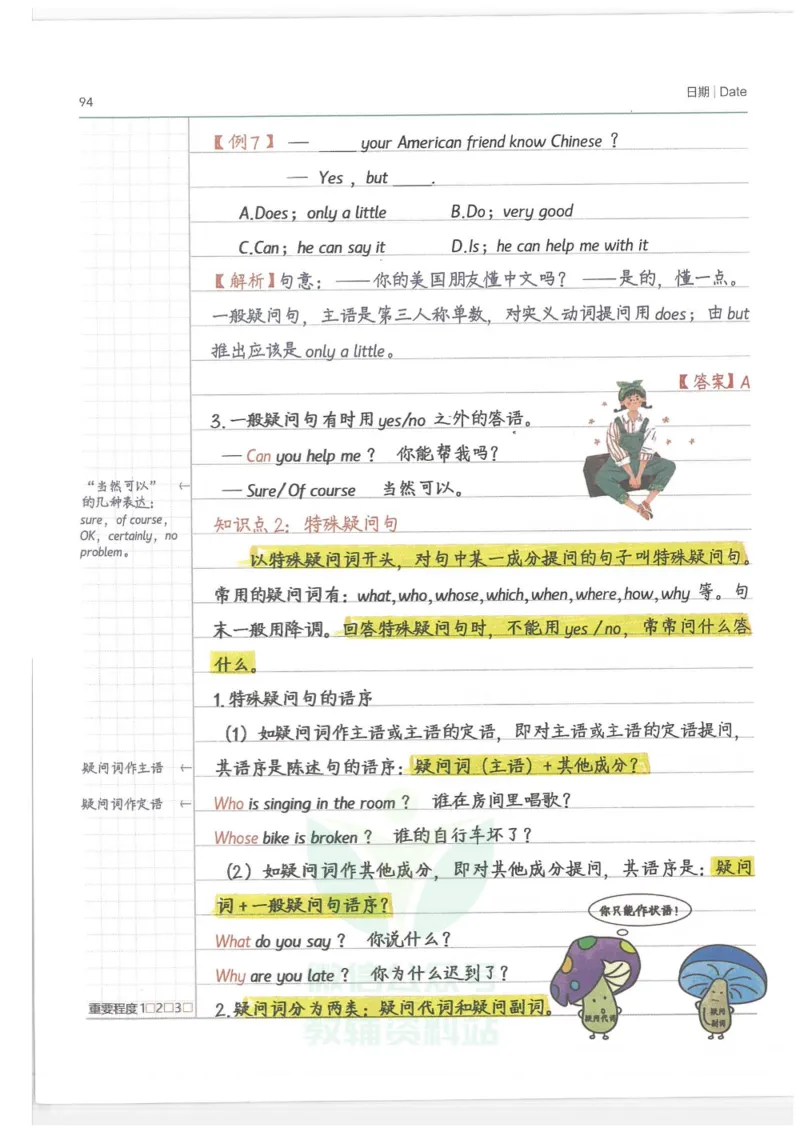 日期 | Date
94
【例7】— ____ your American friend know Chinese ?
— Yes , but ____.
A.Does; only a little B.Do; very good
C.Can; he can say it D.Is; he can help me with it
【解析】句意：——你的美国朋友懂中文吗？ ——是的，懂一点。
一般疑问句，主语是第三人称单数，对实义动词提问用does；由but
推出应该是only a little。
【答案】A
3.一般疑问句有时用yes/no 之外的答语。
— Can you help me ? 你能帮我吗？
— Sure/Of course 当然可以。
“当然可以” ←
的几种表达：
sure, of course,
OK, certainly, no
problem。
知识点2：特殊疑问句
以特殊疑问词开头，对句中某一成分提问的句子叫特殊疑问句。
常用的疑问词有：what,who,whose,which,when,where,how,why 等。句
末一般用降调。回答特殊疑问句时，不能用yes /no，常常问什么答
什么。
1.特殊疑问句的语序
（1）如疑问词作主语或主语的定语，即对主语或主语的定语提问，
疑问词作主语 ←
其语序是陈述句的语序：疑问词（主语）+其他成分？
疑问词作定语 ←
Who is singing in the room ? 谁在房间里唱歌？
Whose bike is broken ? 谁的自行车坏了？
（2）如疑问词作其他成分，即对其他成分提问，其语序是：疑问
词+一般疑问句语序？
你只能作状语！
What do you say ? 你说什么？
Why are you late ? 你为什么迟到了？
微信公众号
重要程度 1□2□3□
2.疑问词分为两类：疑问代词和疑问副词。
疑问代词
疑问
副词
教辅资料站